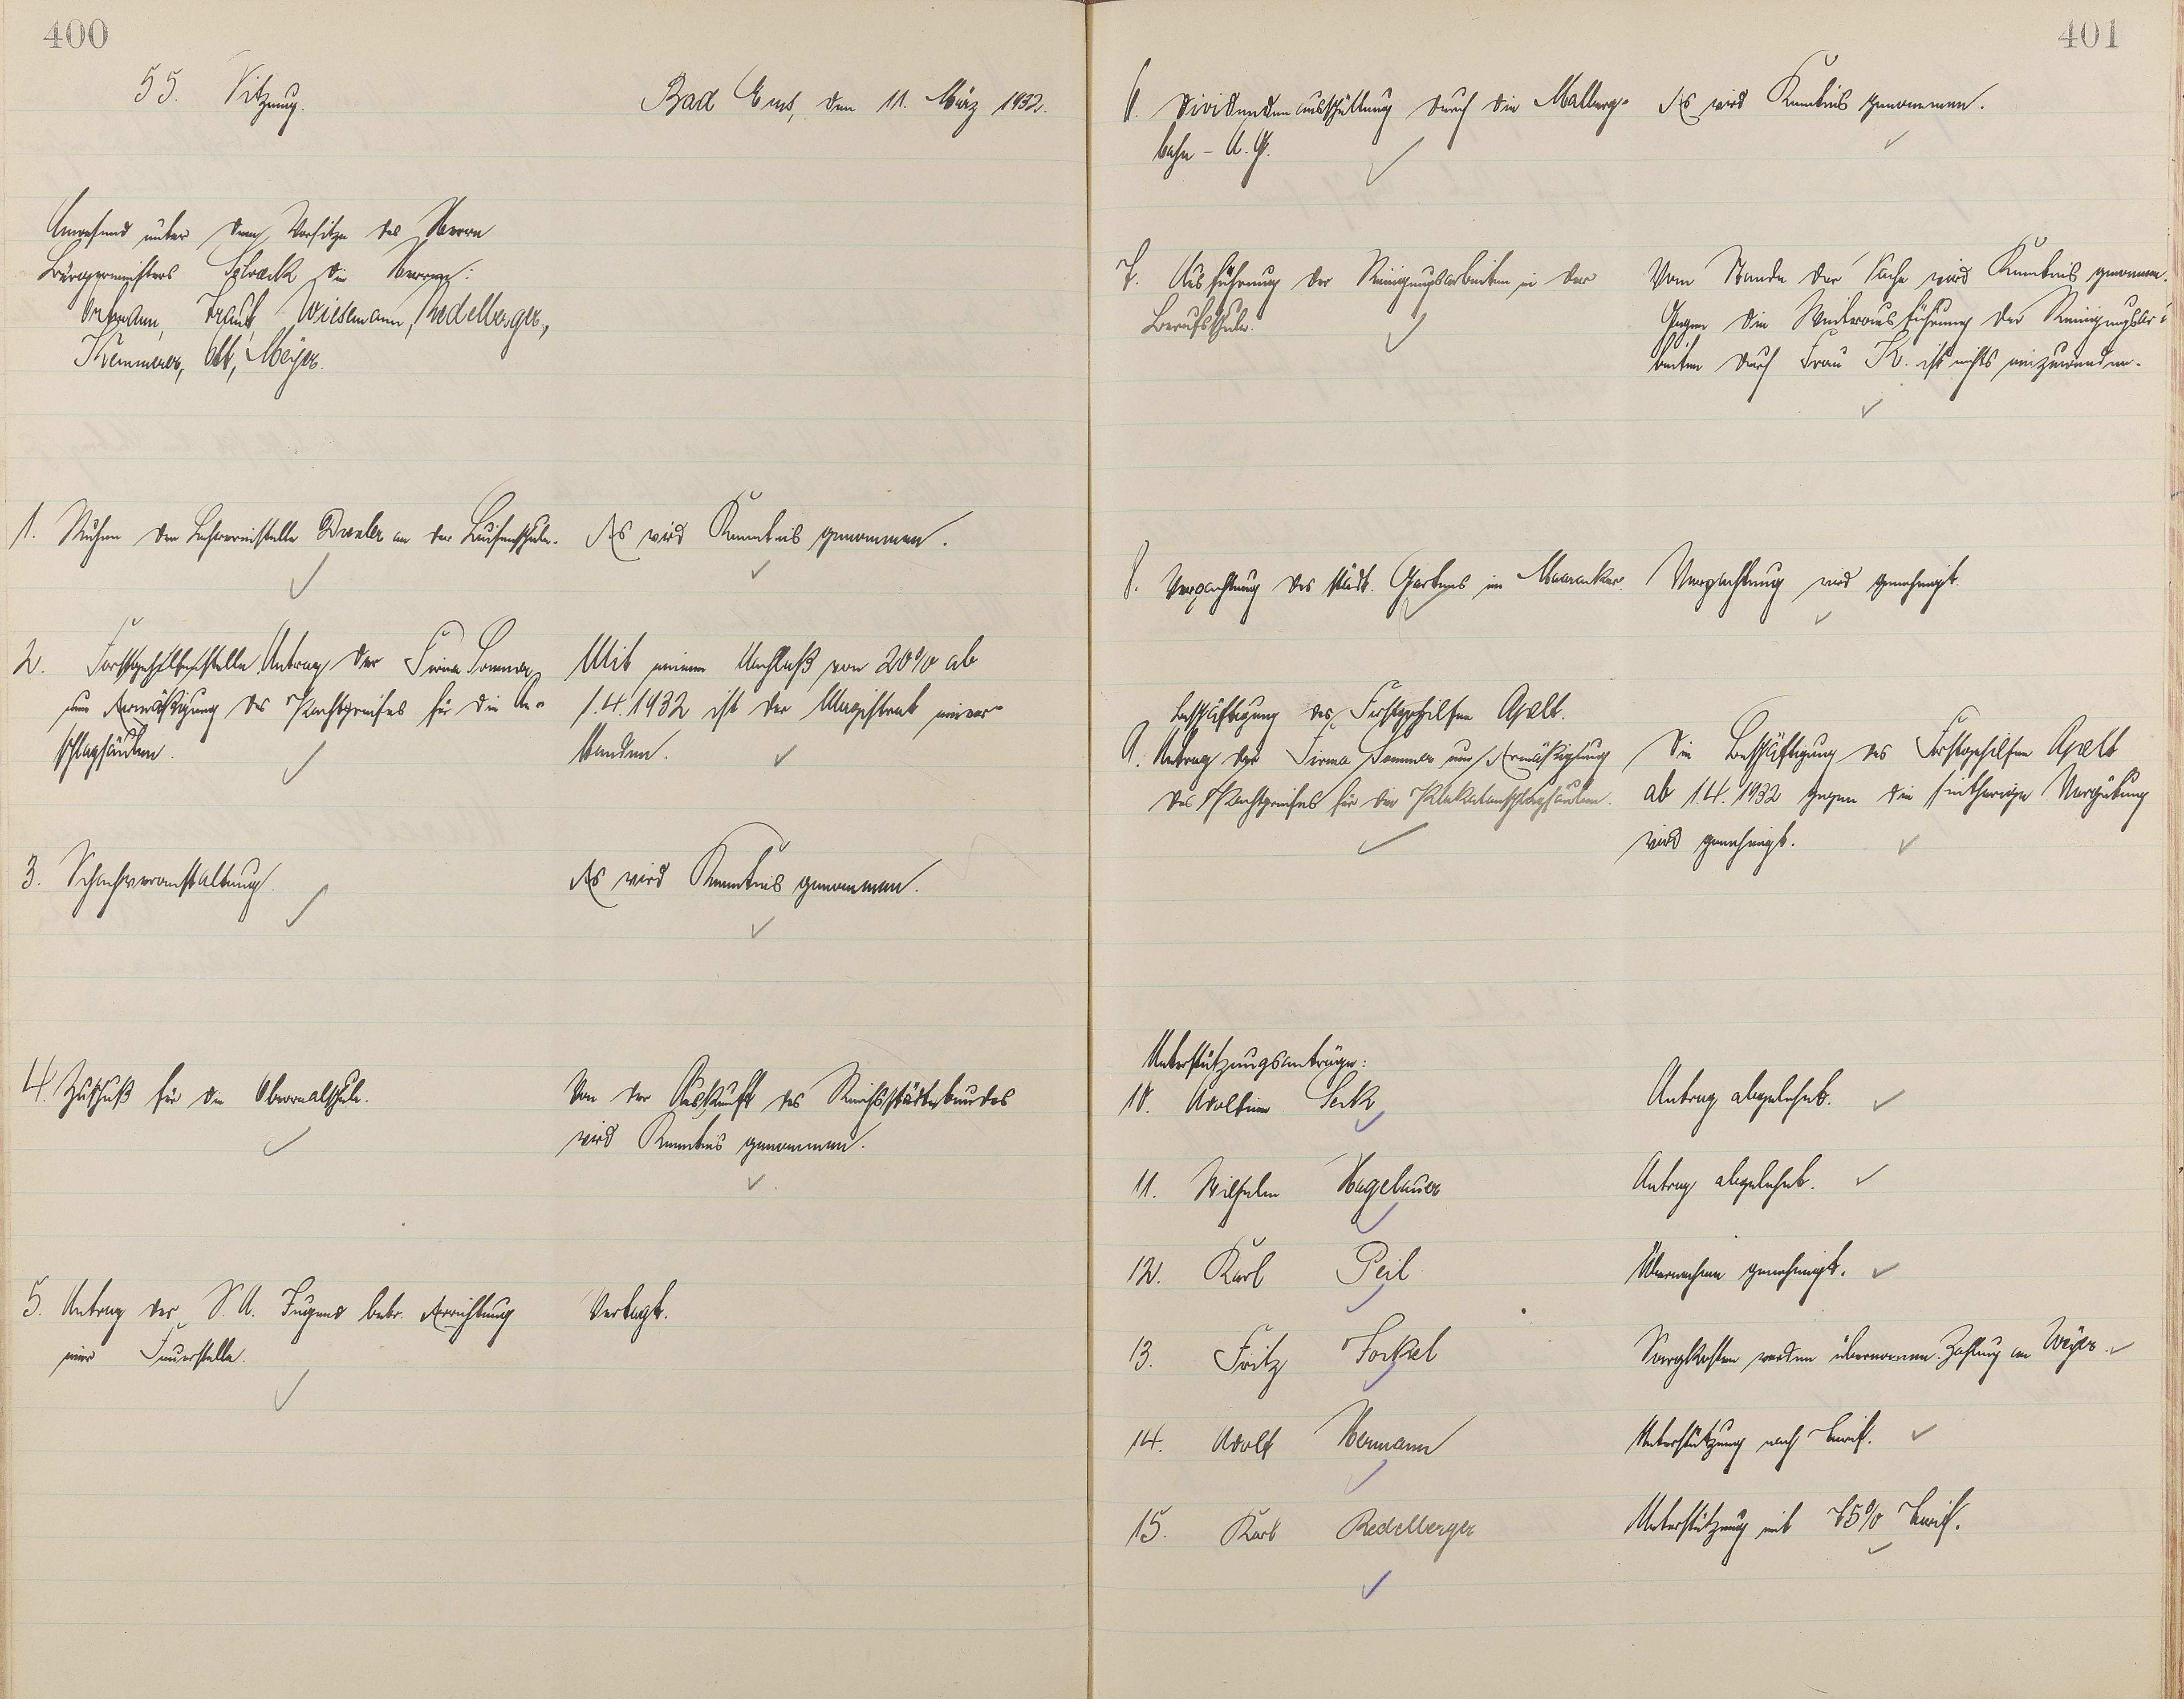 400
55. Sitzung.
Bad Ems, den 11. März 1932.
Anwesend unter dem Vorsitze des Herrn
Bürgermeisters Schreck die Herren:
Ortmann, Traut, Wiesemann, Redelberger,
Kemmerer, Ott, Meyer.
1. Ruhen der Lehrerinstelle an der Luisenschule.
Es wird Kenntnis genommen.
2. Forstgehilfenstelle Antrag der Firma Sommer
um Ermäßigung des Pachtpreises für die An-
schlagsäulen.
Mit einem Nachlaß von 20% ab
1.4.1932 ist der Magistrat einver-
standen.
3. Schachveranstaltung.
Es wird Kenntnis genommen.
4. Zuschuß für die Oberrealschule.
Von der Auskunft des Reichsstädtebundes
wird Kenntnis genommen.
5. Antrag der S. A. Jugend betr. Errichtung
einer Feuerstelle.
Vertagt.
401
6. Dividendenausschüttung durch die Malberg-
bahn - A. G.
Es wird Kenntnis genommen.
7. Ausführung der Reinigungsarbeiten in der
Berufsschule.
Vom Stande der Sache wird Kenntnis genommen.
Gegen die Weiterausführung der Reinigungsar-
beiten durch Frau K. ist nichts einzuwenden.
8. Verpachtung des städt. Gartens im
Verpachtung wird genehmigt.
Beschäftigung des Forstgehilfen Apelt.
9. Antrag der Firma Sommer um Ermäßigung
des Pachtpreises für die Plakatanschlagsäulen.
Die Beschäftigung des Forstgehilfen Apelt
ab 1.4.1932 gegen die seitherige Vergütung
wird genehmigt.
Unterstützungsanträge:
10. Adoltine
Antrag abgelehnt.
11. Wilhelm Hagelauer
Antrag abgelehnt.
12. Karl Peil
Übernahme genehmigt.
13. Fritz Forkel
Sargkosten werden übernommen. Zahlung an Weyer.
14. Adolf Hermann
Unterstützung nach Tarif.
15. Karl Redelberger
Unterstützung mit 75% Tarif.